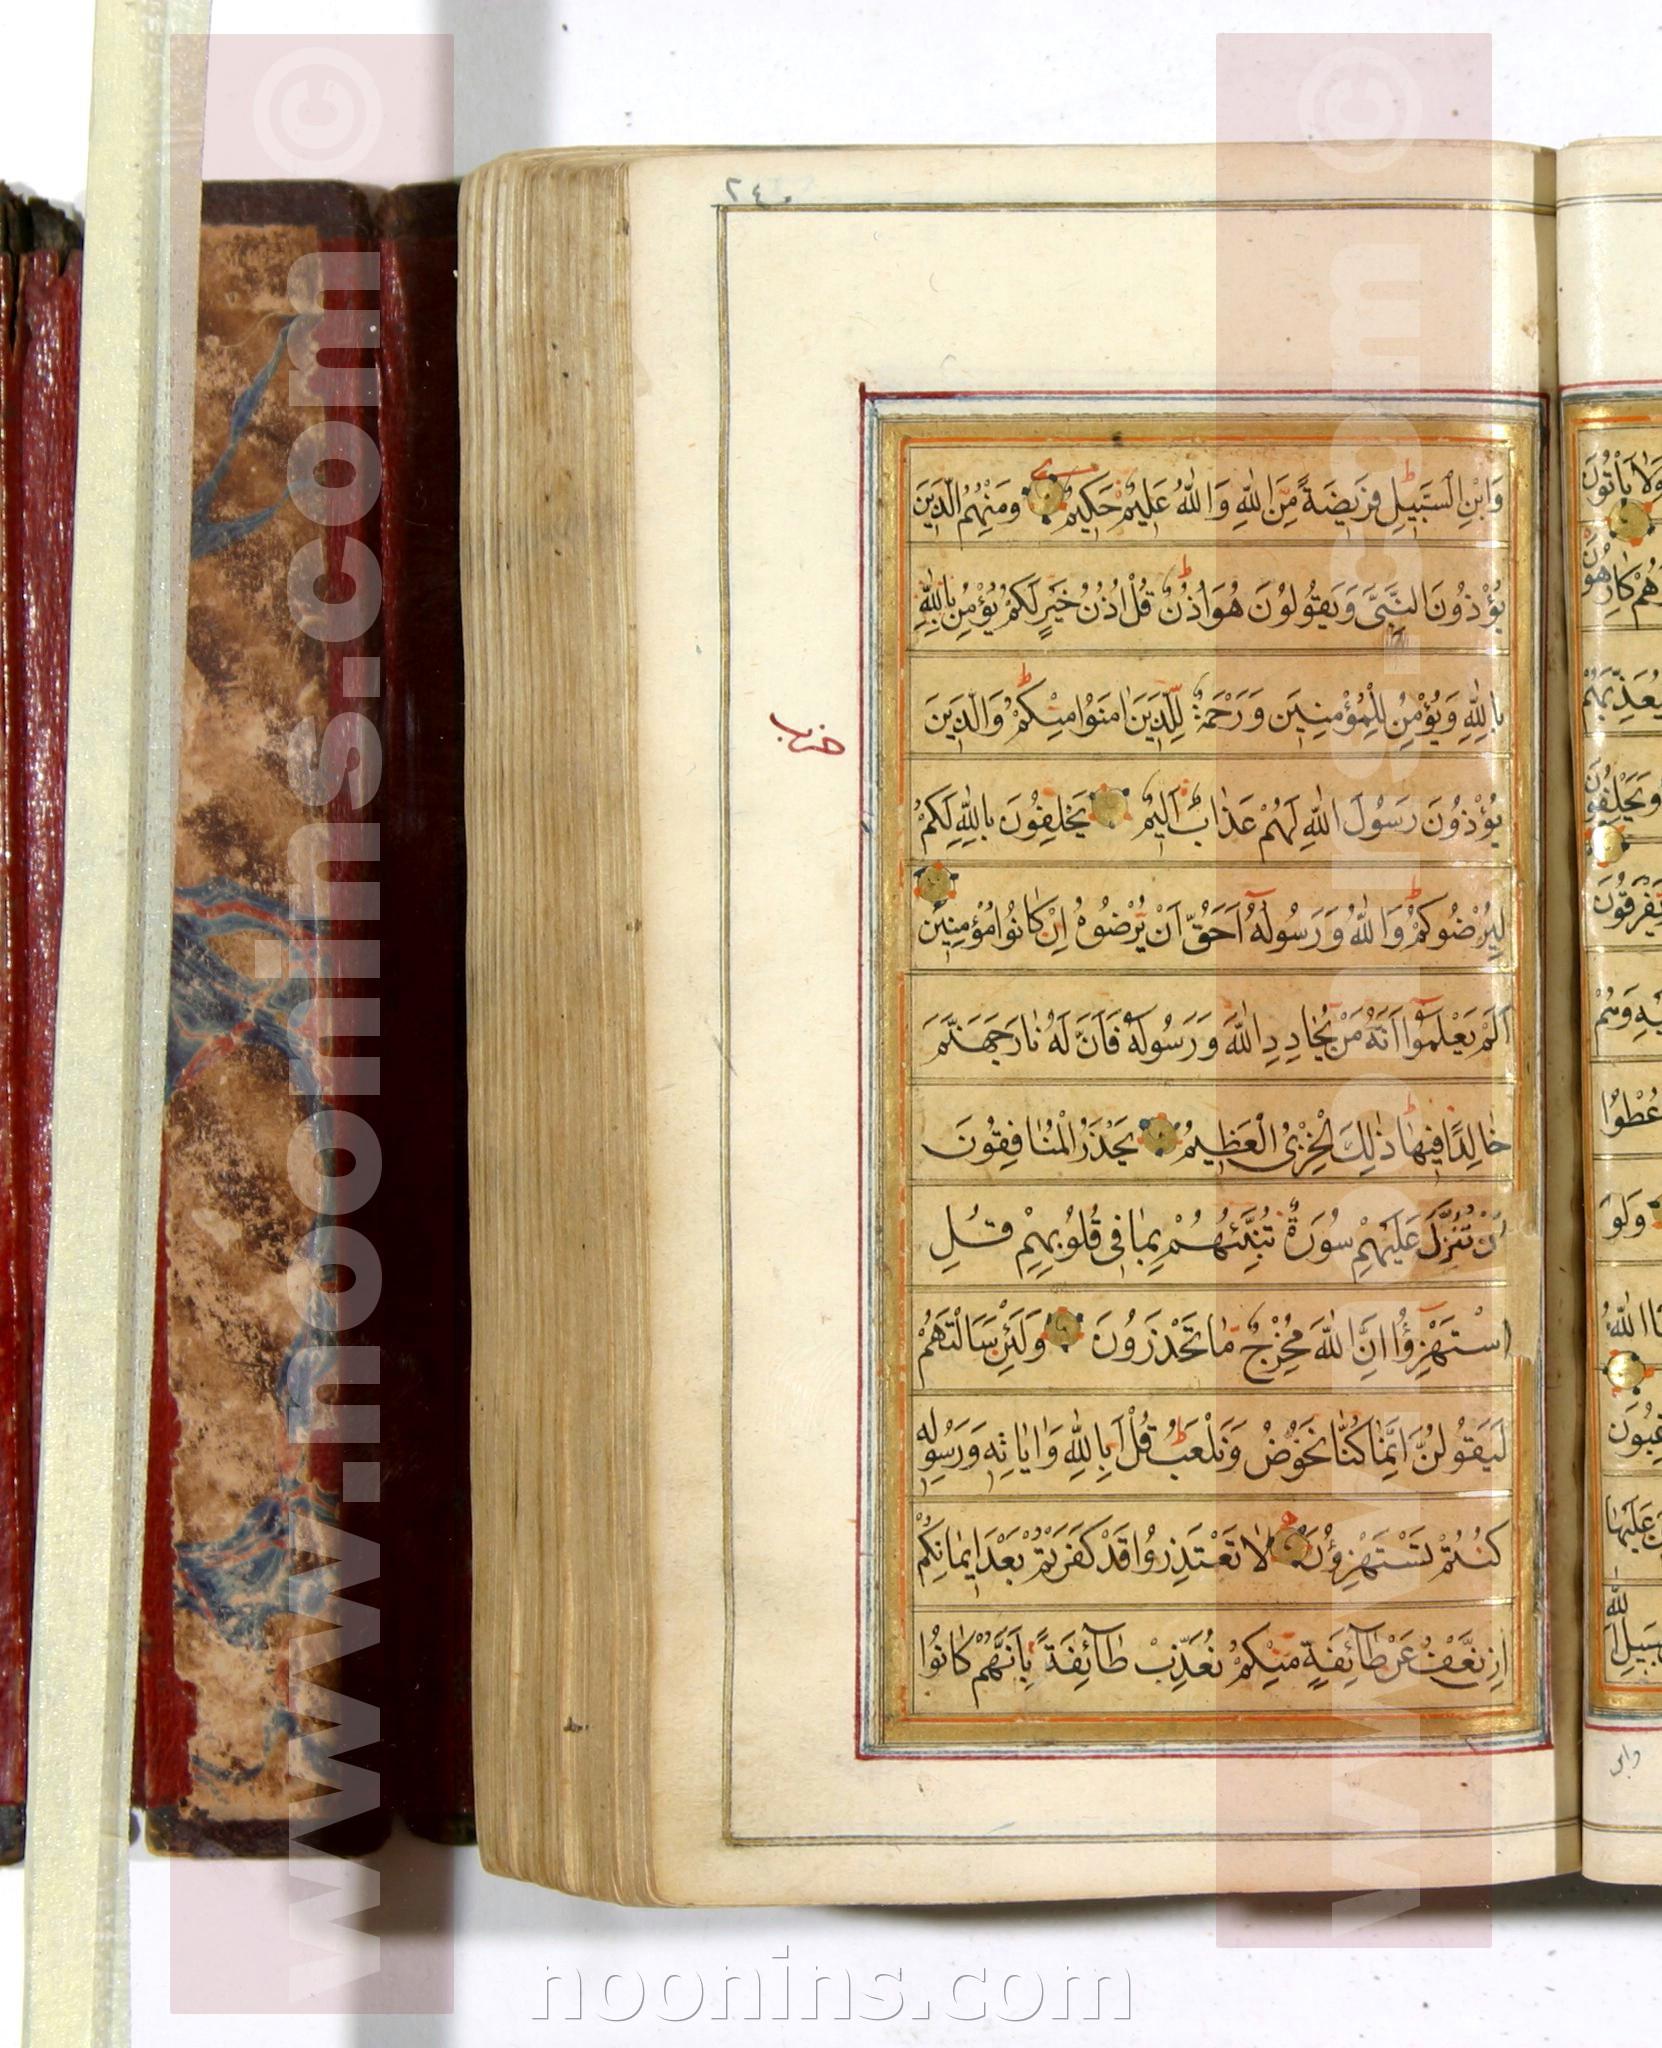 ٢٤٠
وَابْنِ السَّبِيلِ فَرِيضَةً مِّنَ اللّٰهِ وَاللّٰهُ عَلِيمٌ حَكِيمٌ وَمِنْهُمُ الَّذِينَ
يُؤْذُونَ النَّبِيَّ وَيَقُولُونَ هُوَ اُذُنٌ قُلْ اُذُنُ خَيْرٍ لَكُمْ يُؤْمِنُ بِاللّٰهِ
بِاللّٰهِ وَيُؤْمِنُ لِلْمُؤْمِنِينَ وَرَحْمَةٌ لِلَّذِينَ اٰمَنُوا مِنْكُمْ وَالَّذِينَ
حزب
يُؤْذُونَ رَسُولَ اللّٰهِ لَهُمْ عَذَابٌ اَلِيمٌ يَحْلِفُونَ بِاللّٰهِ لَكُمْ
لِيُرْضُوكُمْ وَاللّٰهُ وَرَسُولُهُ اَحَقُّ اَنْ يُرْضُوهُ اِنْ كَانُوا مُؤْمِنِينَ
اَلَمْ يَعْلَمُوا اَنَّهُ مَنْ يُحَادِدِ اللّٰهَ وَرَسُولَهُ فَاَنَّ لَهُ نَارَ جَهَنَّمَ
خَالِدًا فِيهَا ذٰلِكَ الْخِزْيُ الْعَظِيمُ يَحْذَرُ الْمُنَافِقُونَ
اَنْ تُنَزَّلَ عَلَيْهِمْ سُورَةٌ تُنَبِّئُهُمْ بِمَا فِي قُلُوبِهِمْ قُلِ
اسْتَهْزِؤُا اِنَّ اللّٰهَ مُخْرِجٌ مَا تَحْذَرُونَ وَلَئِنْ سَاَلْتَهُمْ
لَيَقُولُنَّ اِنَّمَا كُنَّا نَخُوضُ وَنَلْعَبُ قُلْ اَبِاللّٰهِ وَاٰيَاتِهِ وَرَسُولِهِ
كُنْتُمْ تَسْتَهْزِؤُنَ لَا تَعْتَذِرُوا قَدْ كَفَرْتُمْ بَعْدَ اِيمَانِكُمْ
اِنْ نَعْفُ عَنْ طَائِفَةٍ مِنْكُمْ نُعَذِّبْ طَائِفَةً بِاَنَّهُمْ كَانُوا
وَلَا يَاْتُونَ
وَهُمْ كَارِهُونَ
وَيَحْلِفُونَ
يَفْرَقُونَ
وَلَوْ
وابن
www.noonins.com ©
www.noonins.com ©
noonins.com